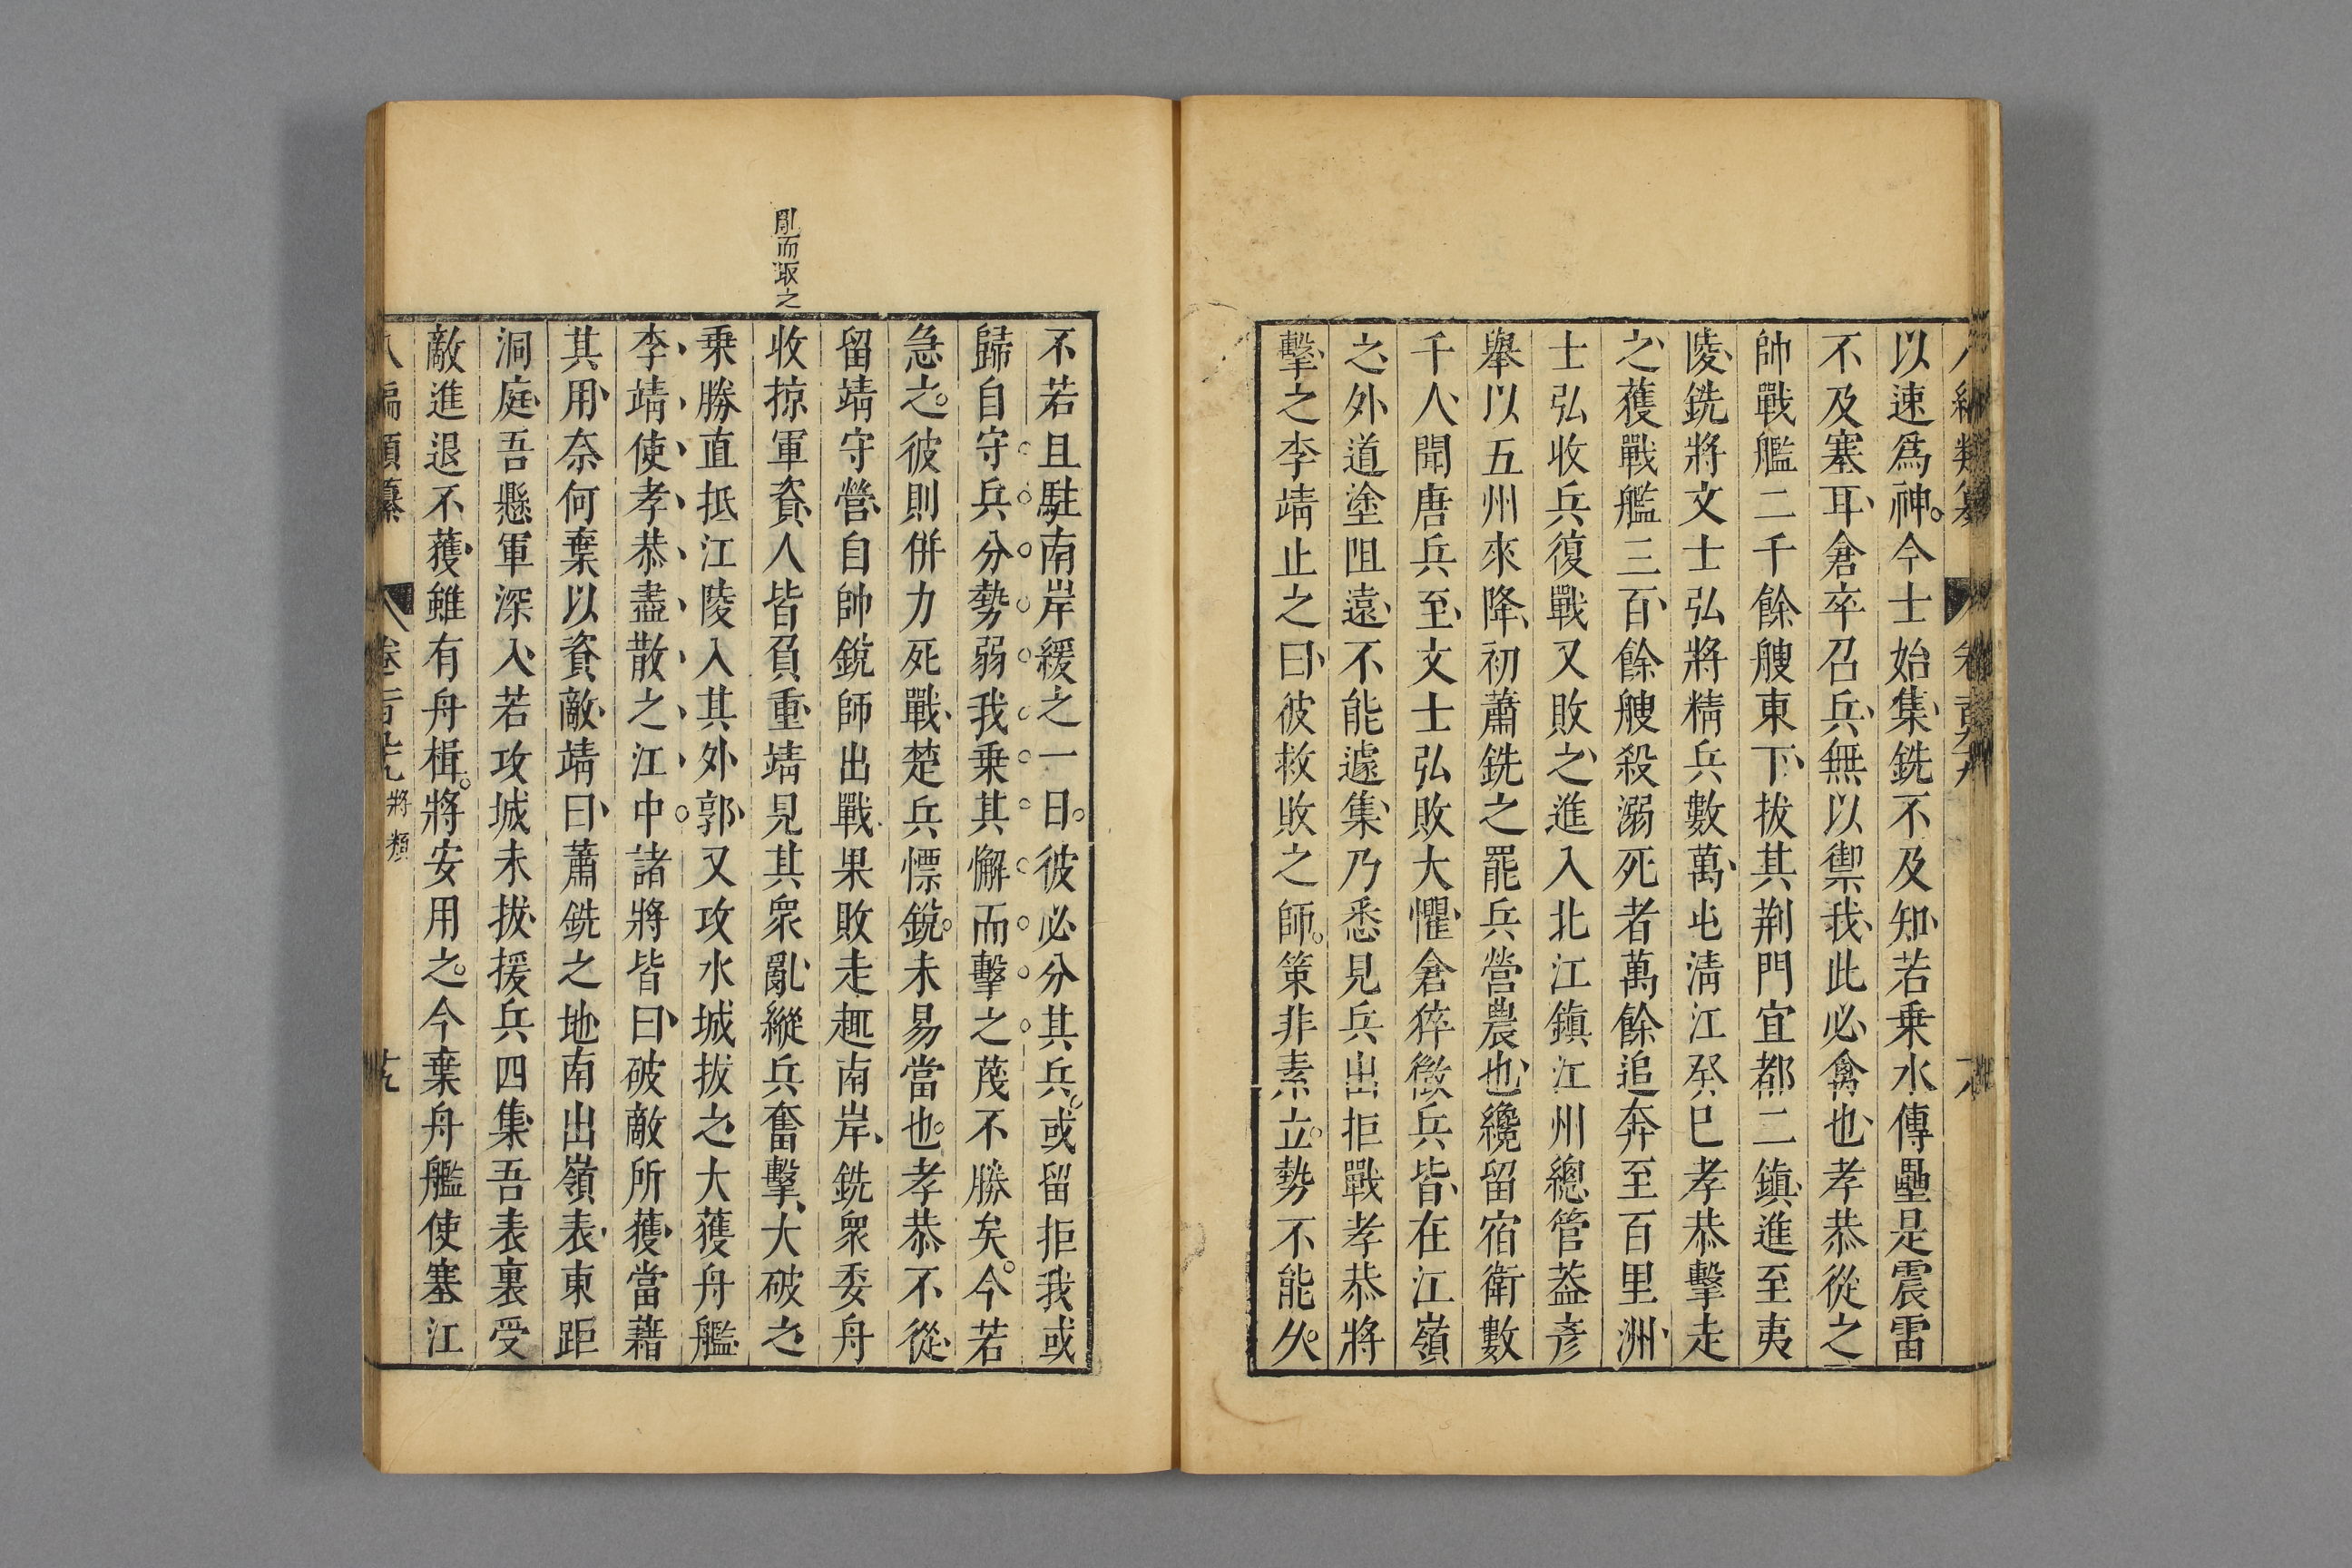 以速爲神今士始集銑不及知若乗水傳壘是震雷
不及塞耳倉卒召兵無以禦我此必禽也孝恭從之
帥戰艦二千餘艘東下拔其荆門宜都二鎮進至夷
陵銑將文士弘將精兵數萬屯淸江癸巳孝恭擊走
之獲戰艦三百餘艘殺溺死者萬餘追奔至百里洲
士弘收兵復戰又敗之進入北江鎮江州總管葢彦
舉以五州來降初蕭銑之罷兵營農也纔留宿衛數
千人聞唐兵至文士弘敗大懼倉猝徵兵皆在江嶺
之外道塗阻遠不能遽集乃悉見兵出拒戰孝恭將
擊之李靖止之曰彼救敗之師策非素立勢不能久
亂而取之
不若且駐南岸緩之一日彼必分其兵或留拒我或
歸自守兵分勢弱我乗其懈而擊之蔑不勝矣今若
急之彼則併力死戰楚兵慓銳未易當也孝恭不從
留靖守營自帥銳師出戰果敗走趣南岸銑衆委舟
收掠軍資人皆負重靖見其衆亂縱兵奮擊大破之
乗勝直抵江陵入其外郭又攻水城拔之大獲舟艦
李靖使孝恭盡散之江中諸將皆曰破敵所獲當藉
其用奈何棄以資敵靖曰蕭銑之地南出嶺表東距
洞庭吾懸軍深入若攻城未拔援兵四集吾表裏受
敵進退不獲雖有舟楫將安用之今棄舟艦使塞江
將類